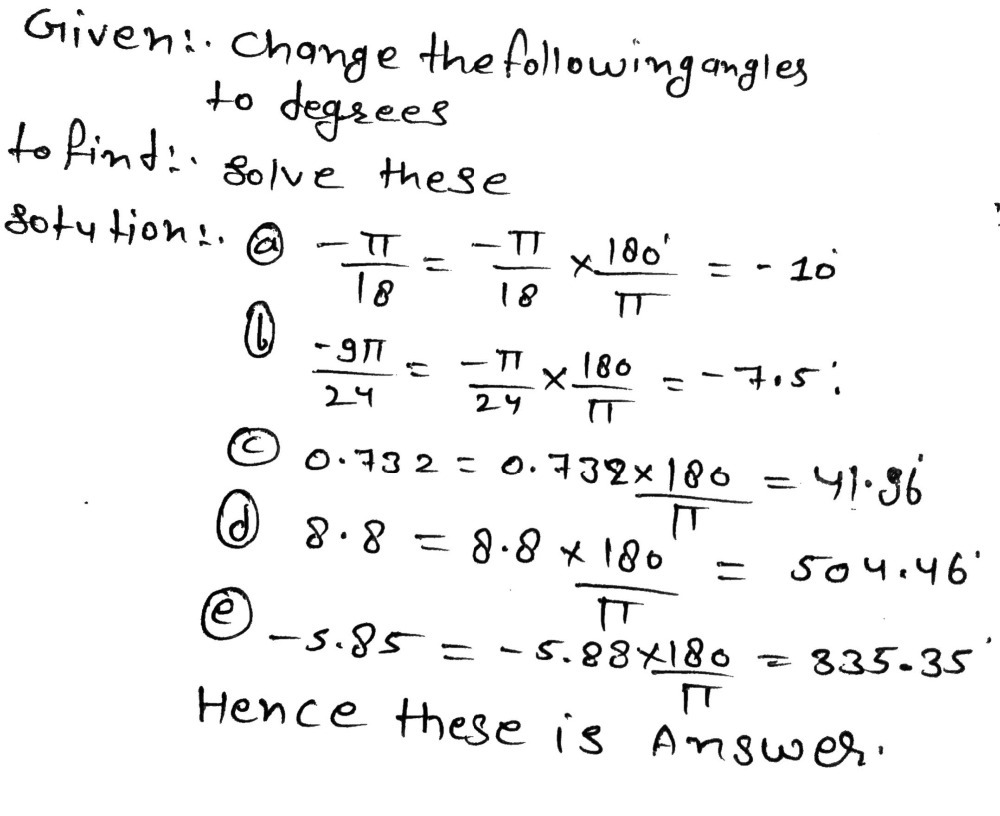 Given:. Change the following angles
to degrees
to find:. Solve these
Solution:. ⓐ -π/18 = -π/18 × 180°/π = -10°
ⓑ -9π/24 = -π/24 × 180/π = -7.5°
ⓒ 0.732 = 0.732 × 180/π = 41.96°
ⓓ 8.8 = 8.8 × 180/π = 504.46°
ⓔ -5.85 = -5.88 × 180/π = 335.35°
Hence these is Answer.